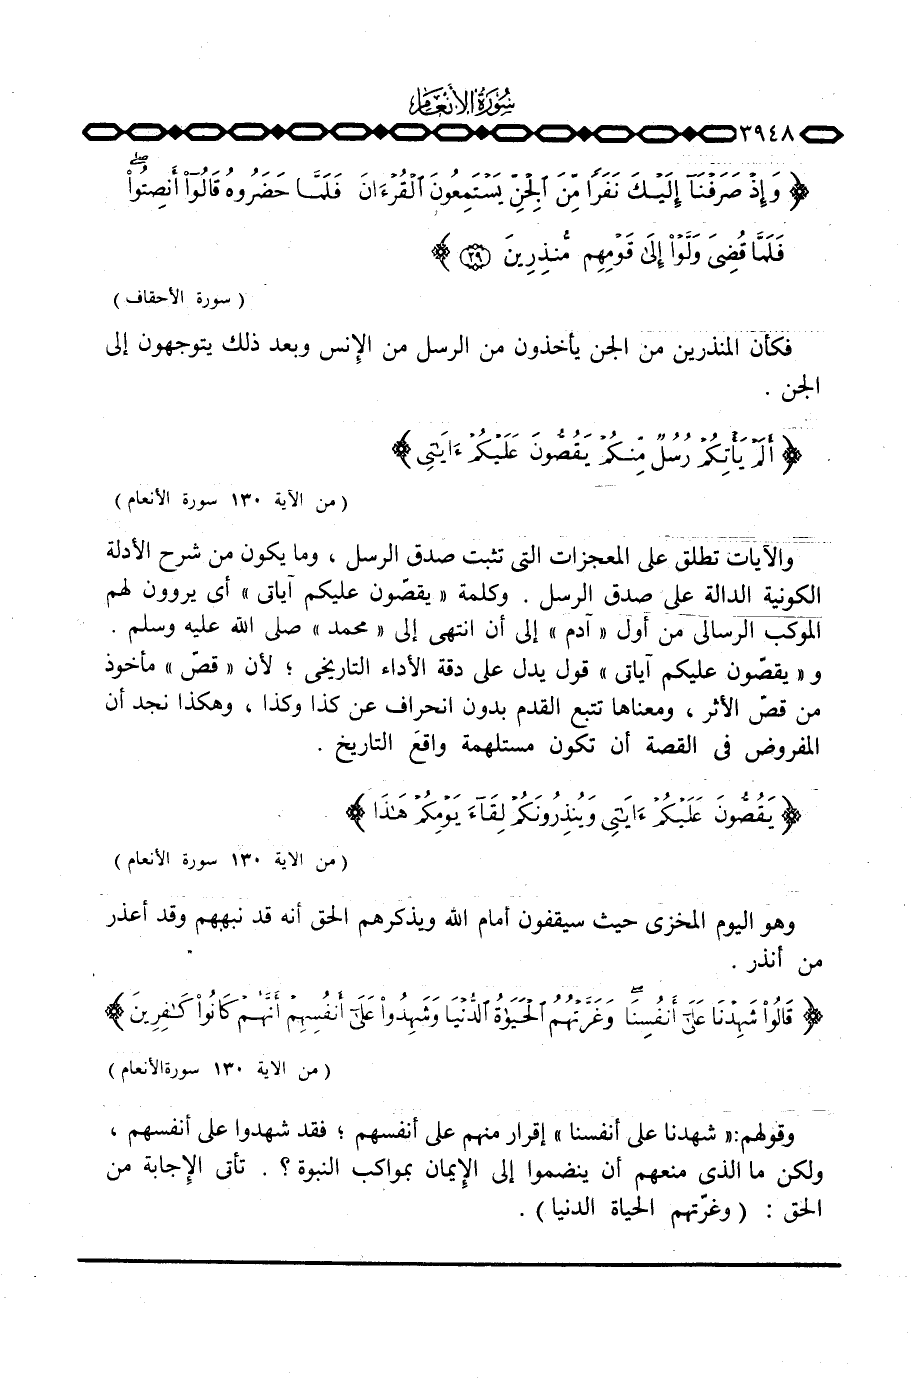 سُورَةُ الأَنْعَام
٣٩٤٨
﴿ وَإِذْ صَرَفْنَآ إِلَيْكَ نَفَرًا مِّنَ ٱلْجِنِّ يَسْتَمِعُونَ ٱلْقُرْءَانَ فَلَمَّا حَضَرُوهُ قَالُوٓا۟ أَنصِتُوا۟ۖ
فَلَمَّا قُضِىَ وَلَّوْا۟ إِلَىٰ قَوْمِهِم مُّنذِرِينَ ﴿٢٩﴾ ﴾
( سورة الأحقاف )
فكأن المنذرين من الجن يأخذون من الرسل من الإنس وبعد ذلك يتوجهون إلى
الجن .
﴿ أَلَمْ يَأْتِكُمْ رُسُلٌ مِّنكُمْ يَقُصُّونَ عَلَيْكُمْ ءَايَٰتِى ﴾
( من الآية ١٣٠ سورة الأنعام )
والآيات تطلق على المعجزات التى تثبت صدق الرسل ، وما يكون من شرح الأدلة
الكونية الدالة على صدق الرسل . وكلمة « يقصّون عليكم آياتى » أى يروون لهم
الموكب الرسالى من أول « آدم » إلى أن انتهى إلى « محمد » صلى الله عليه وسلم .
و « يقصّون عليكم آياتى » قول يدل على دقة الأداء التاريخى ؛ لأن « قصّ » مأخوذ
من قصّ الأثر ، ومعناها تتبع القدم بدون انحراف عن كذا وكذا ، وهكذا نجد أن
المفروض فى القصة أن تكون مستلهمة واقعَ التاريخ .
﴿ يَقُصُّونَ عَلَيْكُمْ ءَايَٰتِى وَيُنذِرُونَكُمْ لِقَآءَ يَوْمِكُمْ هَٰذَا ﴾
( من الاية ١٣٠ سورة الأنعام )
وهو اليوم المخزى حيث سيقفون أمام الله ويذكرهم الحق أنه قد نبههم وقد أعذر
من أنذر .
﴿ قَالُوا۟ شَهِدْنَا عَلَىٰٓ أَنفُسِنَاۖ وَغَرَّتْهُمُ ٱلْحَيَوٰةُ ٱلدُّنْيَا وَشَهِدُوا۟ عَلَىٰٓ أَنفُسِهِمْ أَنَّهُمْ كَانُوا۟ كَٰفِرِينَ ﴾
( من الاية ١٣٠ سورةالأنعام )
وقولهم:« شهدنا على أنفسنا » إقرار منهم على أنفسهم ؛ فقد شهدوا على أنفسهم ،
ولكن ما الذى منعهم أن ينضموا إلى الإيمان بمواكب النبوة ؟ . تأتى الإجابة من
الحق : ( وغرّتهم الحياة الدنيا ) .